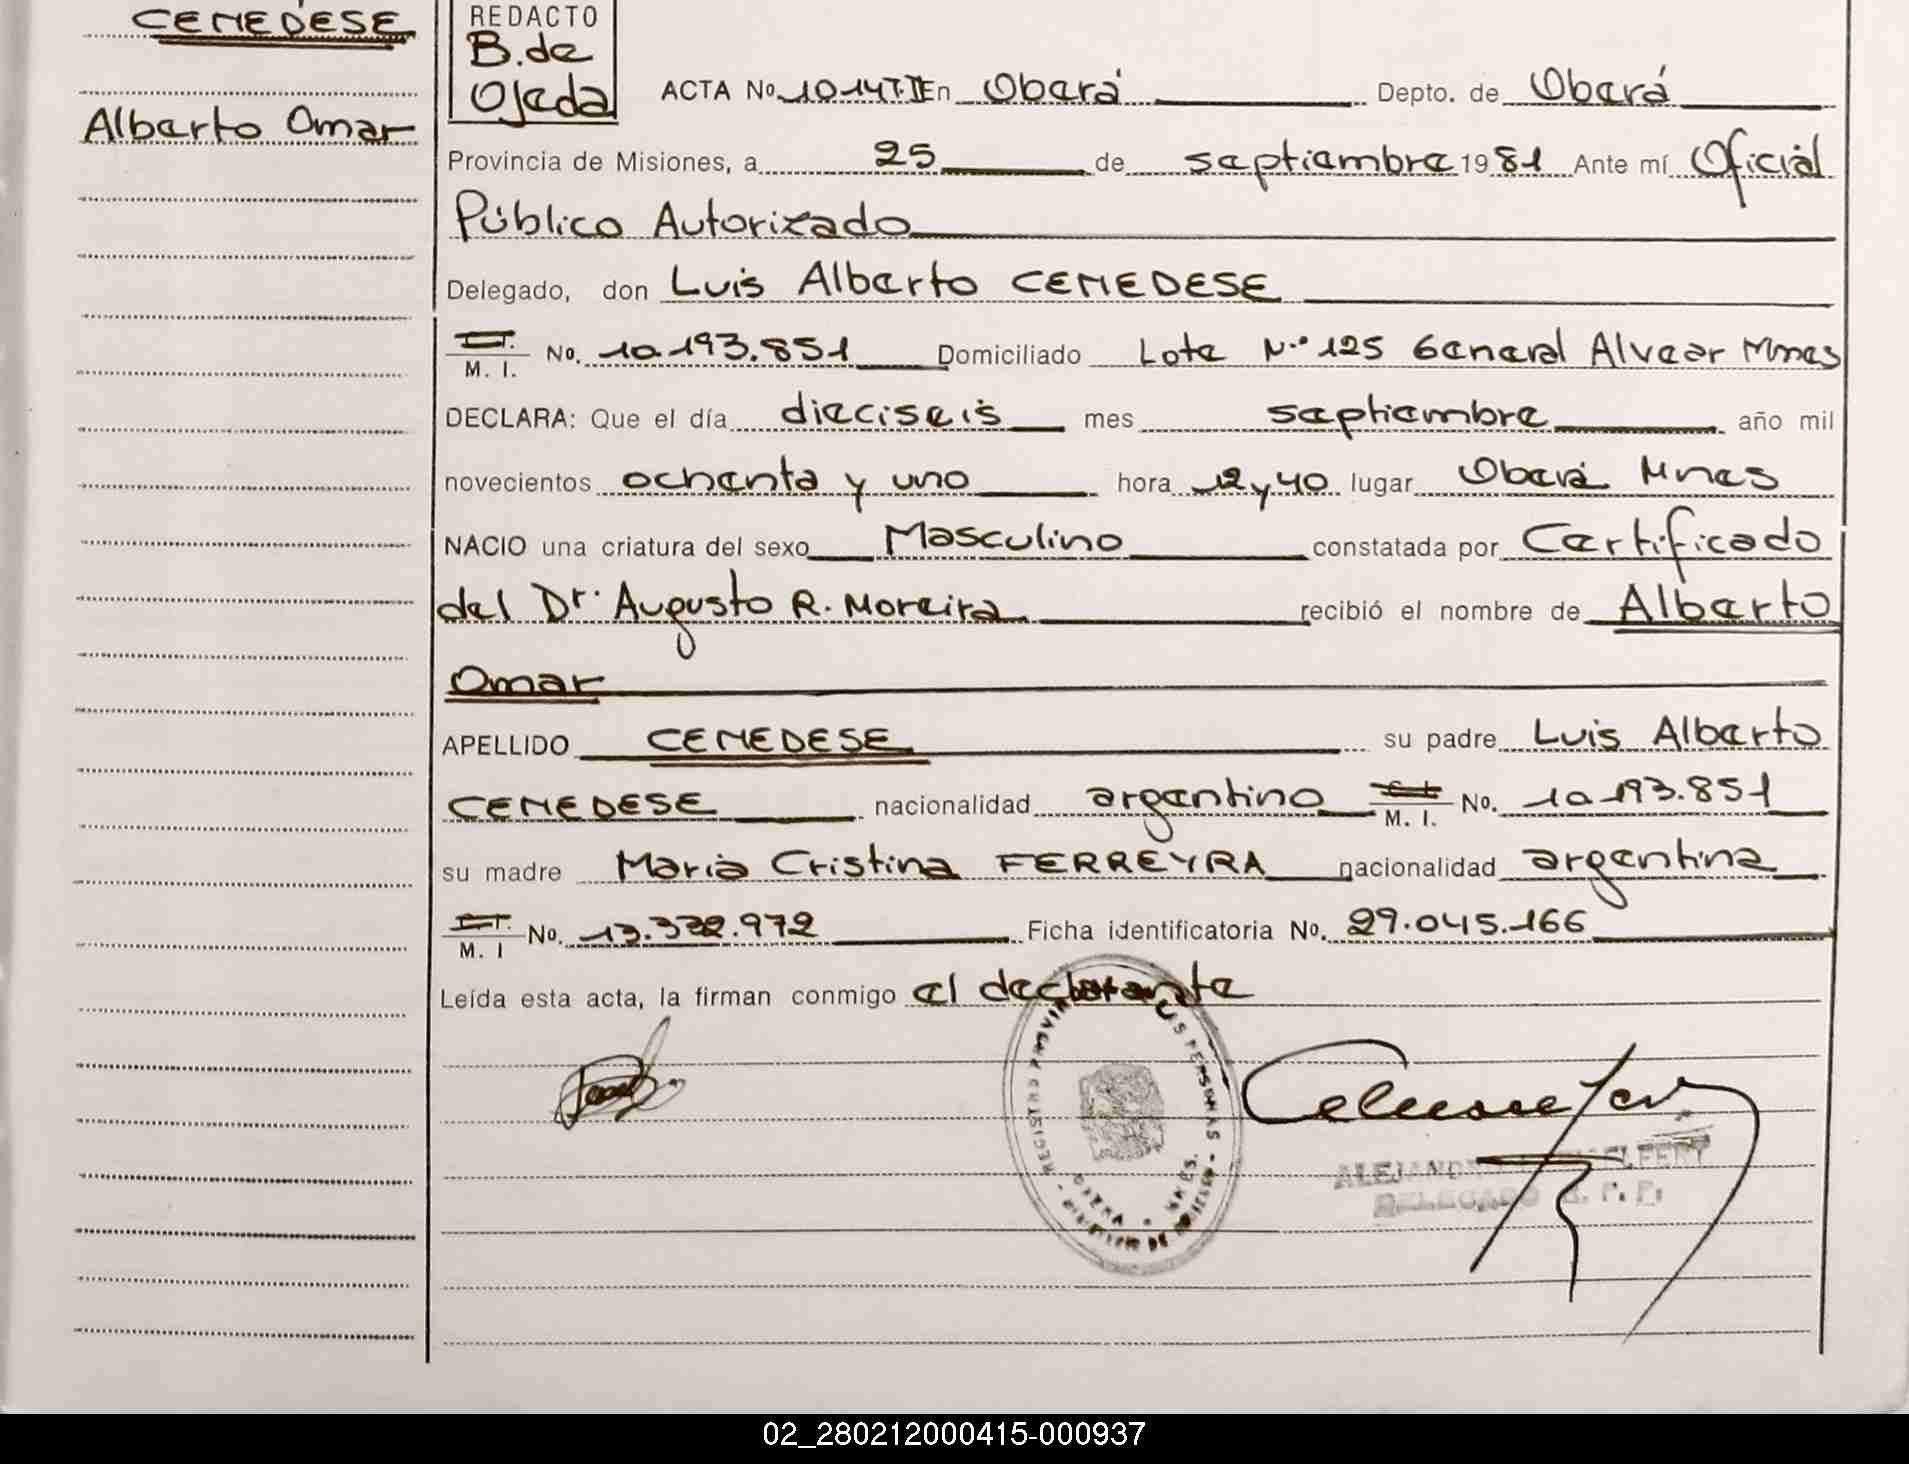 CEMEDESE
Alberto Omar
REDACTO
B. de
Ojeda
ACTA No. 1014T.II En Oberá Depto. de Oberá
Provincia de Misiones, a 25 de septiembre 1981 Ante mí Oficial
Público Autorizado
Delegado, don Luis Alberto CEMEDESE
M. I. No. 10.193.851 Domiciliado Lote N.º 125 General Alvear Mnes
DECLARA: Que el día dieciseis mes septiembre año mil
novecientos ochenta y uno hora 12 y 40 lugar Oberá Mnes
NACIO una criatura del sexo Masculino constatada por Certificado
del Dr. Augusto R. Moreira recibió el nombre de Alberto
Omar
APELLIDO CEMEDESE su padre Luis Alberto
CEMEDESE nacionalidad argentino M. I. No. 10.193.851
su madre María Cristina FERREYRA nacionalidad argentina
M. I No. 13.332.972 Ficha identificatoria No. 29.045.166
Leída esta acta, la firman conmigo el declarante
REGISTRO PROVINCIAL PERSONAS
OBERA MNES.
DELEGADO R. P. P.
02_280212000415-000937